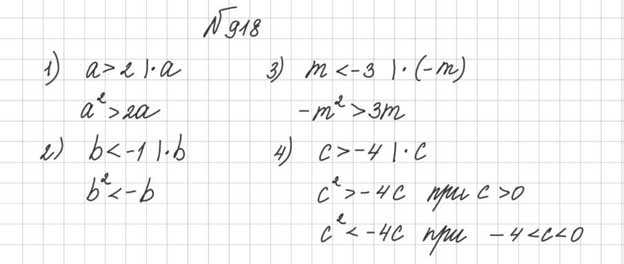 №918
1) a > 2 | · a
a² > 2a
2) b < -1 | · b
b² < -b
3) m < -3 | · (-m)
-m² > 3m
4) c > -4 | · c
c² > -4c при c > 0
c² < -4c при -4 < c < 0